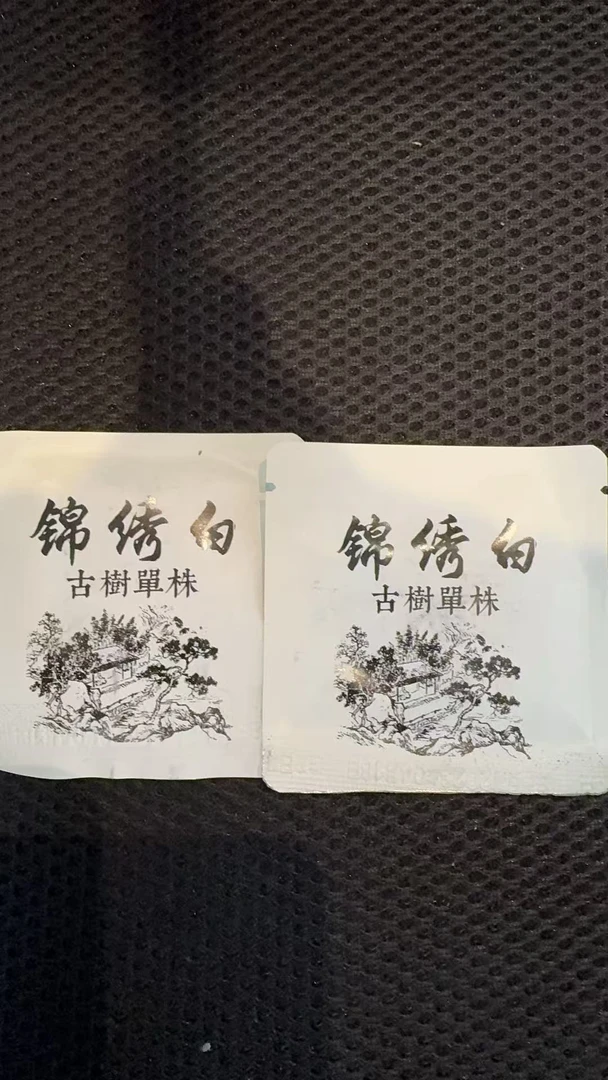 锦绣白
古樹單株
锦绣白
古樹單株